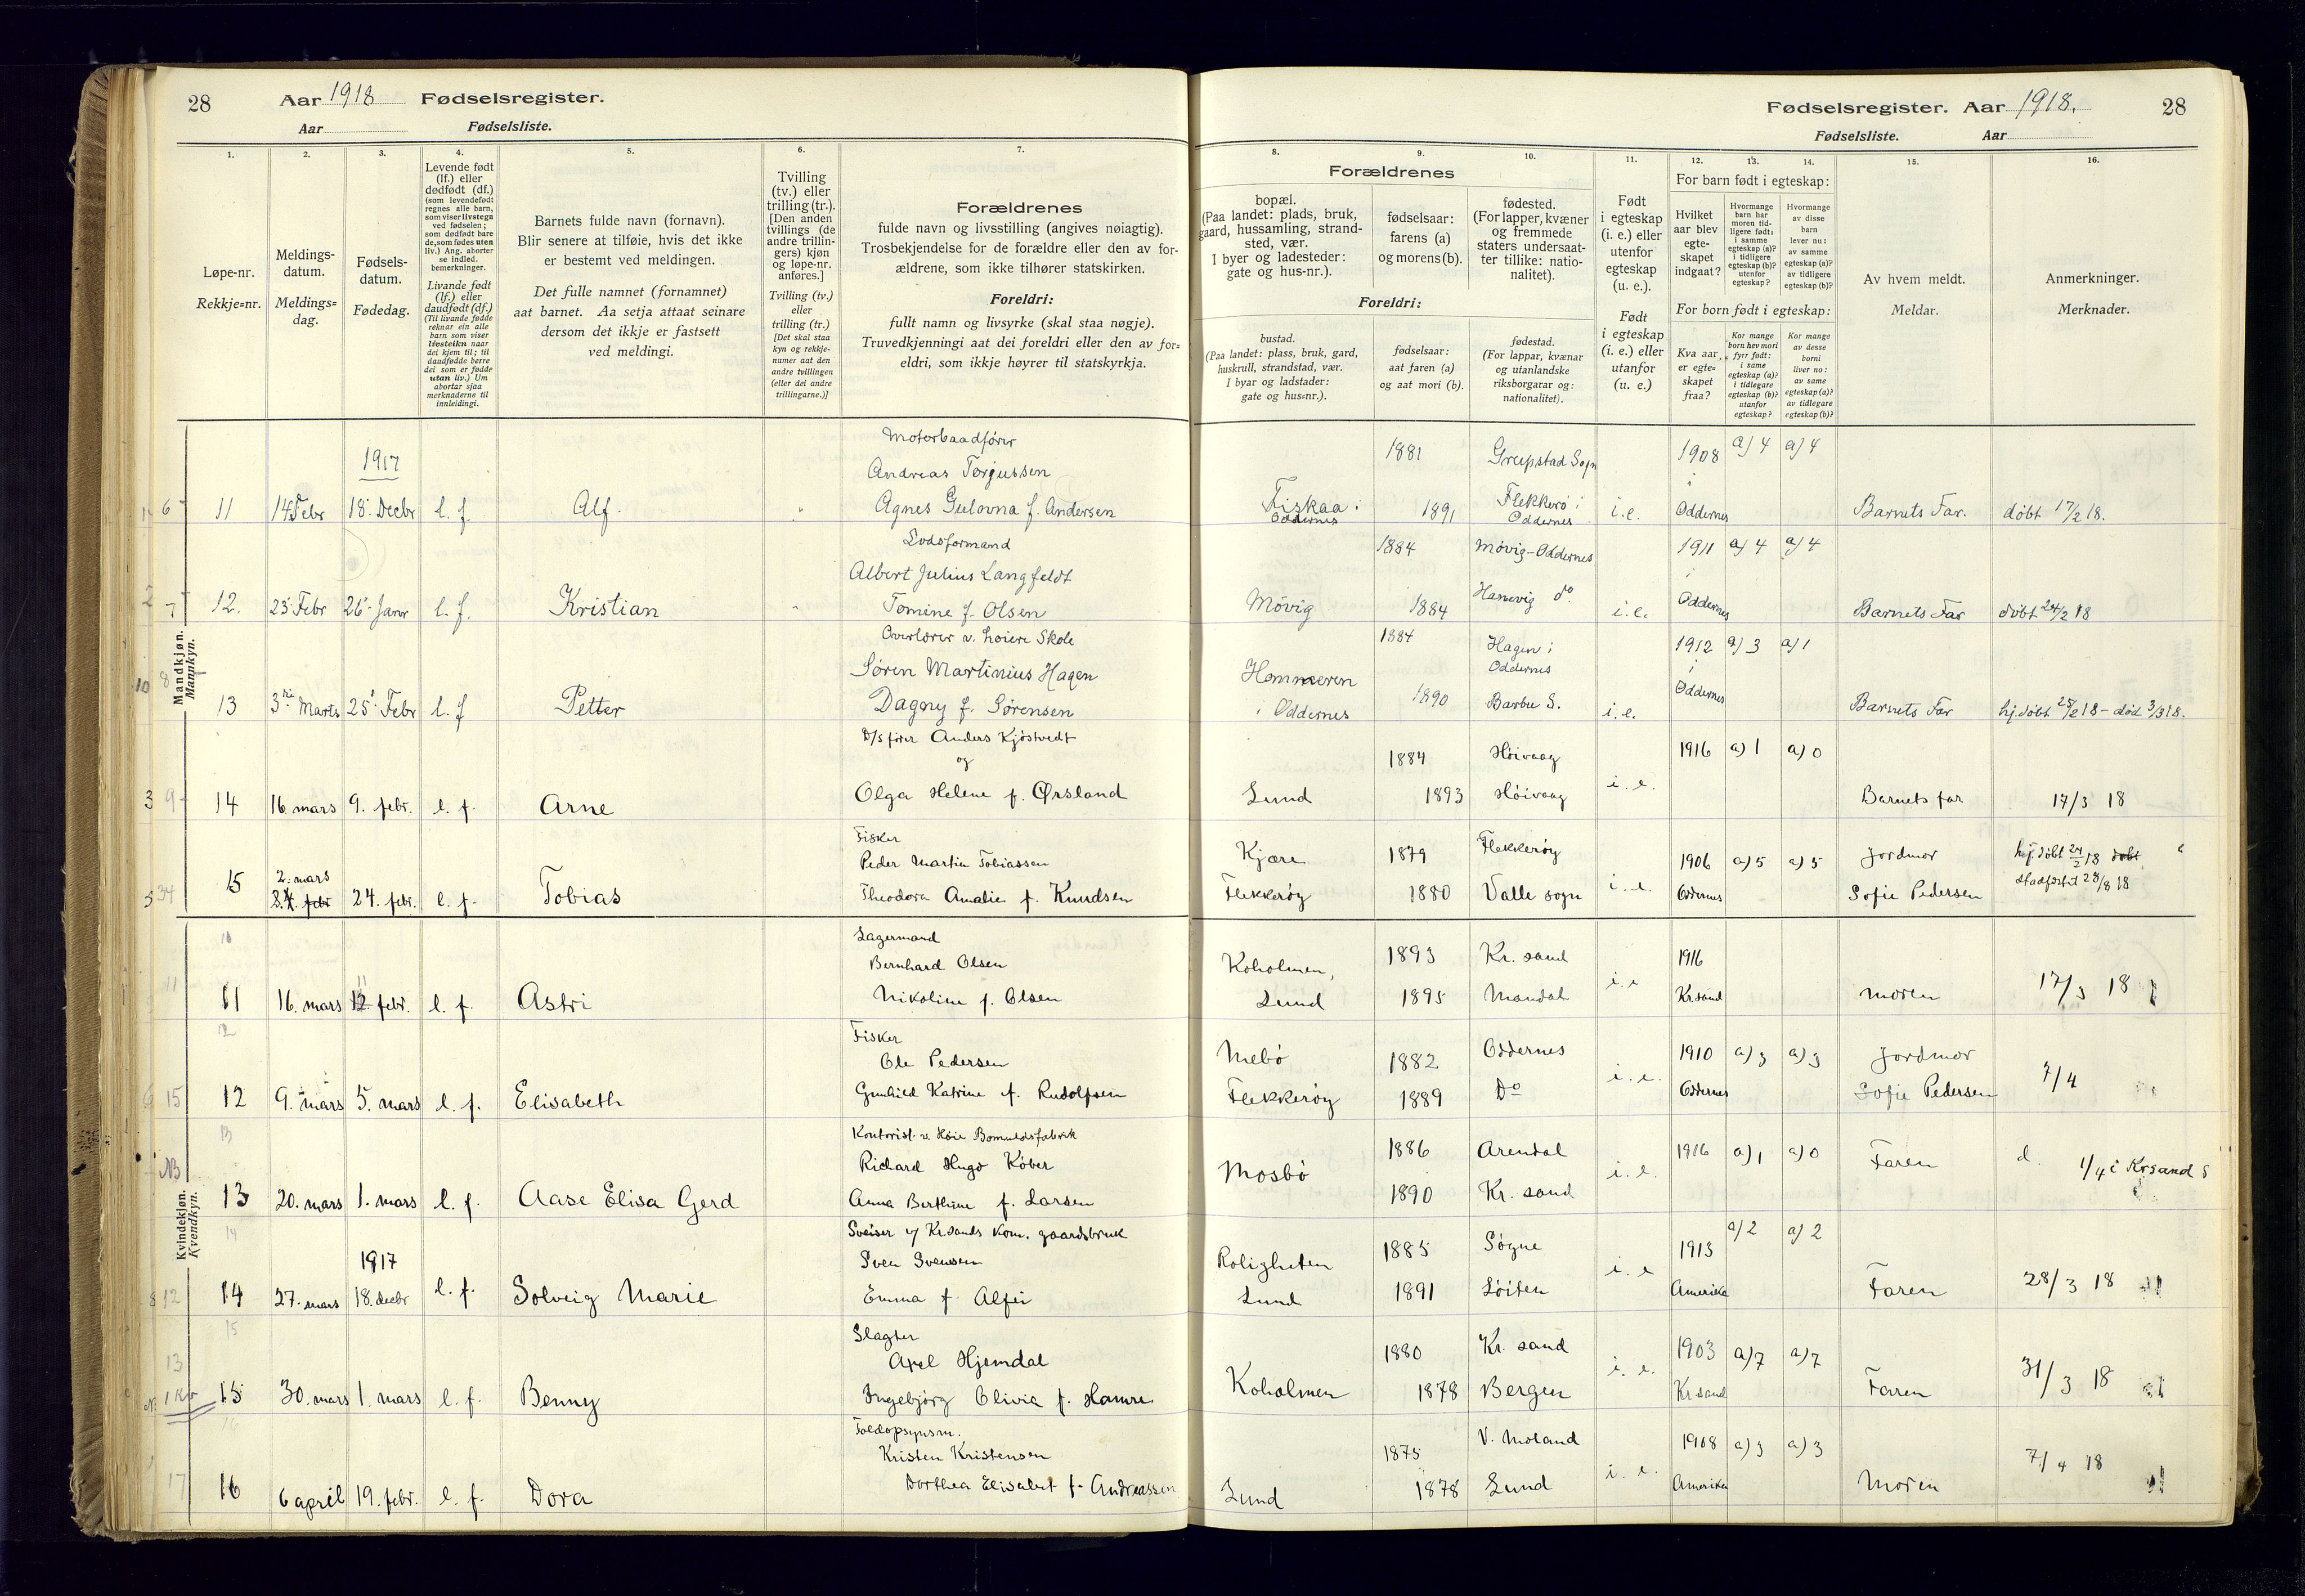 28 Aar 1918 Fødselsregister.
Aar Fødselsliste.
Fødselsregister. Aar 1918. 28
Fødselsliste. Aar
1. 2. 3. 4. 5. 6. 7. 8. 9. 10. 11. 12. 13. 14. 15. 16.
Løpe-nr.
Rekkje=nr.
Meldings-
datum.
Meldings=
dag.
Fødsels-
datum.
Fødedag.
Levende født
(lf.) eller
dødfødt (df.)
(som levendefødt
regnes alle barn,
som viser livstegn
ved fødselen;
som dødfødt bare
de, som fødes uten
liv.) Ang. aborter
se indled.
bemerkninger.
Livande født
(lf.) eller
daudfødt (df.)
(Til livande fødde
reknar ein alle
barn som viser
livsteikn naar
dei kjem til; til
daudfødde berre
dei som er fødde
utan liv.) Um
abortar sjaa
merknaderne til
innleidingi.
Barnets fulde navn (fornavn).
Blir senere at tilføie, hvis det ikke
er bestemt ved meldingen.
Det fulle namnet (fornamnet)
aat barnet. Aa setja attaat seinare
dersom det ikkje er fastsett
ved meldingi.
Tvilling
(tv.) eller
trilling (tr.).
[Den anden
tvillings (de
andre trillin-
gers) kjøn
og løpe-nr.
anføres.]
Tvilling (tv.)
eller
trilling (tr.)
[Det skal staa
kyn og rekkje-
numer aat den
andre tvillingen
(eller dei andre
trillingarne.)]
Forældrenes
fulde navn og livsstilling (angives nøiagtig).
Trosbekjendelse for de forældre eller den av for-
ældrene, som ikke tilhører statskirken.
Foreldri:
fullt namn og livsyrke (skal staa nøgje).
Truvedkjenningi aat dei foreldri eller den av for=
eldri, som ikkje høyrer til statskyrkja.
Forældrenes
bopæl.
(Paa landet: plads, bruk,
gaard, hussamling, strand-
sted, vær.
I byer og ladesteder:
gate og hus-nr.).
fødselsaar:
farens (a)
og morens (b).
fødested.
(For lapper, kvæner
og fremmede
staters undersaat-
ter tillike: natio-
nalitet).
Foreldri:
bustad.
(Paa landet: plass, bruk, gard,
huskrull, strandstad, vær.
I byar og ladstader:
gate og hus=nr.).
fødselsaar:
aat faren (a)
og aat mori (b).
fødestad.
(For lappar, kvænar
og utanlandske
riksborgarar og:
nationalitet).
Født
i egteskap
(i. e.) eller
utenfor
egteskap
(u. e.).
Født
i egteskap
(i. e.) eller
utanfor
(u. e.)
For barn født i egteskap:
Hvilket
aar blev
egte-
skapet
indgaat?
Hvormange
barn har
moren tid-
ligere født:
i samme
egteskap (a)?
i tidligere
egteskap (b)?
utenfor
egteskap?
Hvormange
av disse
barn
lever nu:
av samme
egteskap (a)?
av tidligere
egteskap (b)?
For born født i egteskap:
Kva aar
er egte=
skapet
fraa?
Kor mange
born hev mori
fyrr født:
i same
egteskap (a)?
i tidlegare
egteskap (b)?
utanfor
egteskap?
Kor mange
av desse
borni
liver no:
av same
egteskap (a)?
av tidlegare
egteskap (b)?
Av hvem meldt.
Meldar.
Anmerkninger.
Merknader.
Mandkjøn.
Mannkyn.
1917
Motorbaadfører
Andreas Torjussen 1881 Greipstad Sogn 1908 a) 4 a) 4
11 14 Febr 18. Decbr l. f. Alf. Agnes Gulovna f. Andersen Fiskaa i Oddernes 1891 Flekkerø i Oddernes i. e. i Oddernes Barnets Far. døbt 17/2 18.
Lodsformand
Albert Julius Langfeldt 1884 Møvig-Oddernes 1911 a) 4 a) 4
12. 23 Febr 26 Janr l. f. Kristian Tomine f. Olsen Møvig 1884 Hanevig do. i. e. i Oddernes Barnets Far døbt 24/2 18
Overlærer v. høiere Skole
Søren Martinius Hagen 1884 Hagen i Oddernes 1912 a) 3 a) 1
13 3die Marts 25 Febr l. f Petter Dagny f. Sørensen Hommeren i Oddernes 1890 Barbu S. i. e. i Oddernes Barnets Far hj. døbt 25/2 18 - død 3/3 18.
D/S fører Anders Kjøstvedt
og 1884 Høivaag 1916 a) 1 a) 0
14 16. mars 9. febr. l. f. Arne Olga Helene f. Ørsland Lund 1893 Høivaag i. e. Barnets far 17/3 18
Fisker
Peder Martin Tobiassen Kjære 1879 Flekkerøy 1906 a) 5 a) 5 Jordmor hj. døbt 24/2 18 døbt
15 2. mars 24. febr. l. f. Tobias Theodora Amalie f. Knudsen Flekkerøy 1880 Valle sogn i. e. Oddernes Sofie Pedersen stadfæstet 28/8 18
Kvindekjøn.
Kvendkyn.
Lagermand
Bernhard Olsen Koholmen, 1893 Kr. sand 1916
11 16. mars 12. febr. l. f. Astri Nikoline f. Olsen Lund 1895 Mandal i. e Krsand moren 17/3 18
Fisker
Ole Pedersen Mebø 1882 Oddernes 1910 a) 3 a) 3 Jordmor
12 9. mars 5. mars l. f. Elisabeth Gunhild Katrine f. Rudolfsen Flekkerøy 1889 Do i. e. Oddernes Sofie Pedersen 7/4
Kontorist v. Høie Bomuldsfabrik
Richard Hugo Køber Mosbø 1886 Arendal 1916 a) 1 a) 0 Faren d. 1/4 i Krsand S
13 20. mars 1. mars l. f. Aase Elisa Gerd Anna Berthine f. Larsen 1890 Kr. sand i. e.
Sveiser v/ Krsands kom. gaardsbruk
1917 Sven Svensen Roligheten 1885 Søgne 1913 a) 2 a) 2
14 27. mars 18. decbr l. f. Solveig Marie Emma f. Alfei Lund 1891 Løiten i. e Amerika Faren 28/3 18
Slagter
Axel Hjemdal 1880 Kr. sand 1903 a) 7 a) 7
15 30. mars 1. mars l. f. Benny Ingebjørg Olivia f. Hamre Koholmen 1878 Bergen i. e. Krsand Faren 31/3 18
Toldopsynsm.
Kristen Kristensen 1875 V. Moland 1908 a) 3 a) 3
16 6 april 19. febr. l. f. Dora Dorthea Elisabet f. Andreassen Lund 1878 Lund i. e. Amerika Moren 7/4 18